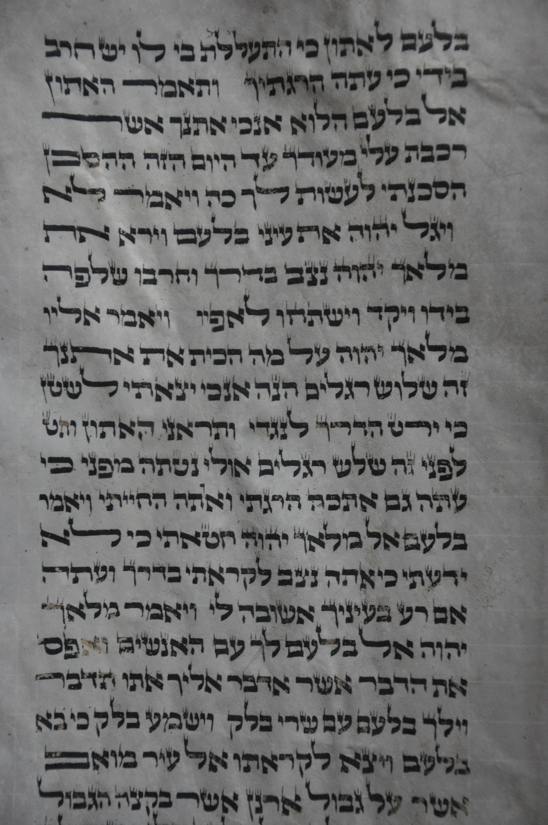 בלעם לאתון כי התעללת בי לו יש חרב
בידי כי עתה הרגתיך ותאמר האתון
אל בלעם הלוא אנכי אתנך אשר
רכבת עלי מעודך עד היום הזה ההסכן
הסכנתי לעשות לך כה ויאמר לא
ויגל יהוה את עיני בלעם וירא את
מלאך יהוה נצב בדרך וחרבו שלפה
בידו ויקד וישתחו לאפיו ויאמר אליו
מלאך יהוה על מה הכית את אתנך
זה שלוש רגלים הנה אנכי יצאתי לשטן
כי ירט הדרך לנגדי ותראני האתון ותט
לפני זה שלש רגלים אולי נטתה מפני כי
עתה גם אתכה הרגתי ואתה החייתי ויאמר
בלעם אל מלאך יהוה חטאתי כי לא
ידעתי כי אתה נצב לקראתי בדרך ועתה
אם רע בעיניך אשובה לי ויאמר מלאך
יהוה אל בלעם לך עם האנשים ואפס
את הדבר אשר אדבר אליך אתו תדבר
וילך בלעם עם שרי בלק וישמע בלק כי בא
בלעם ויצא לקראתו אל עיר מואב
אשר על גבול ארנן אשר בקצה הגבול